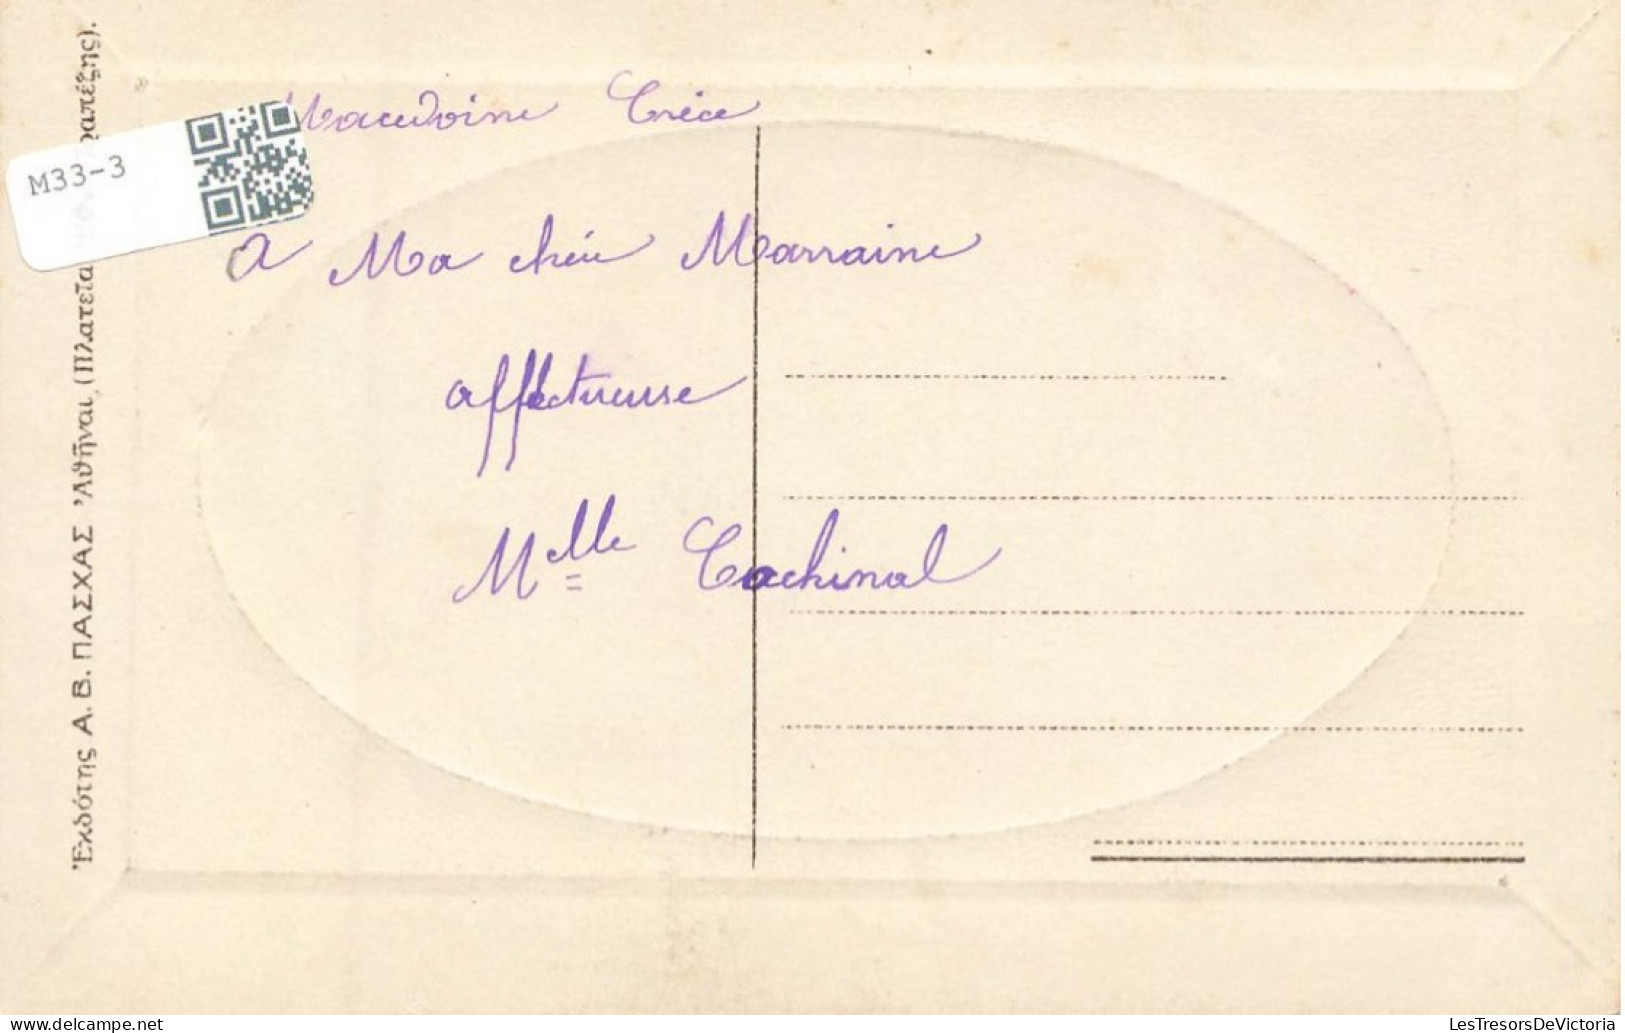 Macedoine Grèce
A Ma chére Marraine
affectueuse
Melle Cachinal
M33-3
Ἐκδότης Α. Β. ΠΑΣΧΑΣ Ἀθῆναι, (Πλατεῖα
delcampe.net
LesTresorsDeVictoria